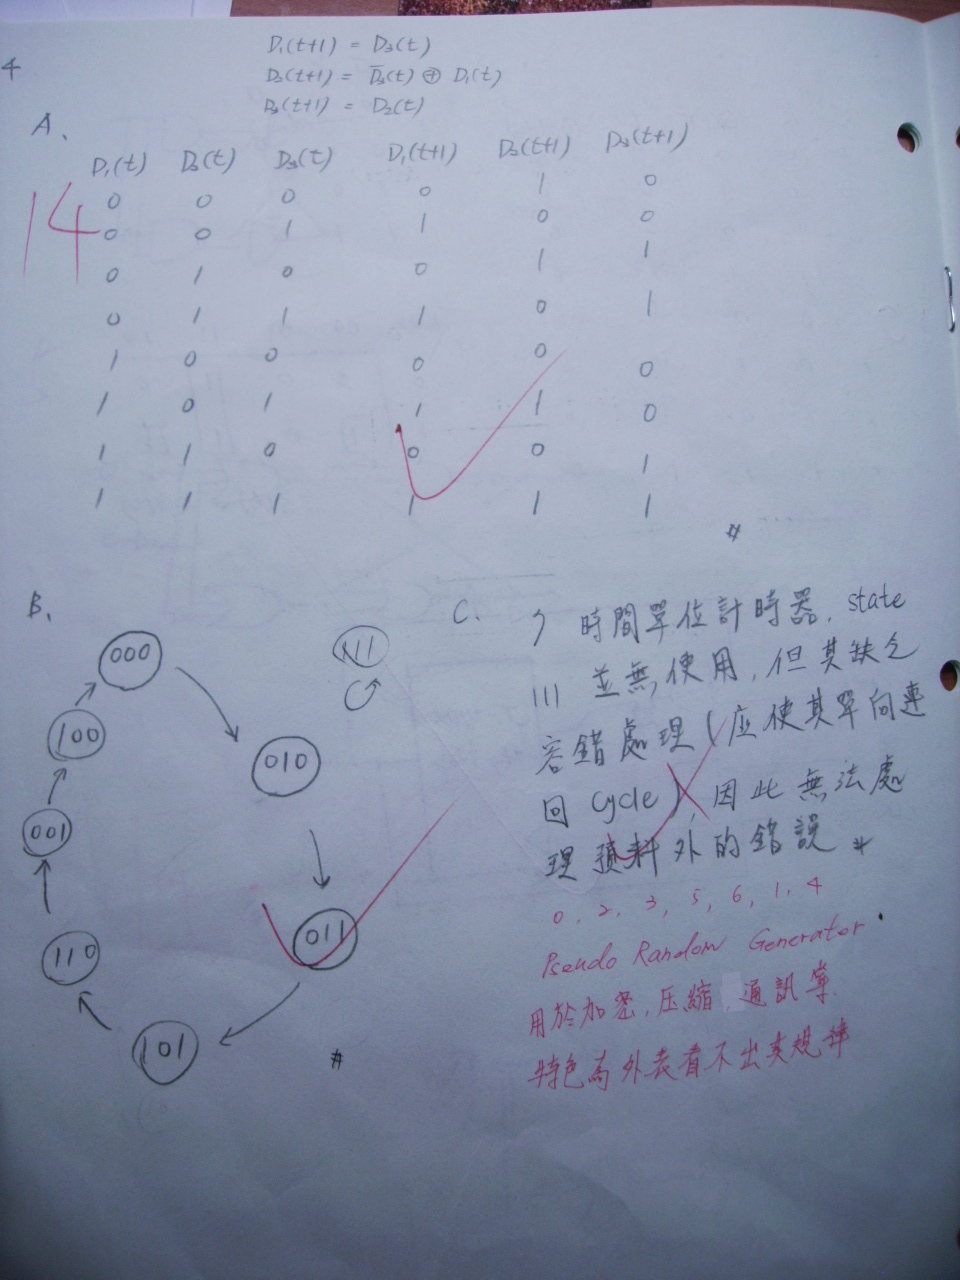 4
D₁(t+1) = D₃(t)
D₂(t+1) = D̅₃(t) ⊕ D₁(t)
D₃(t+1) = D₂(t)
A、
D₁(t) D₂(t) D₃(t) D₁(t+1) D₂(t+1) D₃(t+1)
14
0 0 0 0 1 0
0 0 1 1 0 0
0 1 0 0 1 1
0 1 1 1 0 1
1 0 0 0 0 0
1 0 1 1 1 0
1 1 0 0 0 1
1 1 1 1 1 1
#
B、
000
010
011
101
110
001
100
111
#
C、
7 時間單位計時器. state
111 並無使用, 但其缺乏
容錯處理 (应使其單向連
回 cycle), 因此無法處
理預料外的錯誤 #
0, 2, 3, 5, 6, 1, 4
Pseudo Random Generator
用於加密, 压縮 通訊等
特色為外表看不出其規律